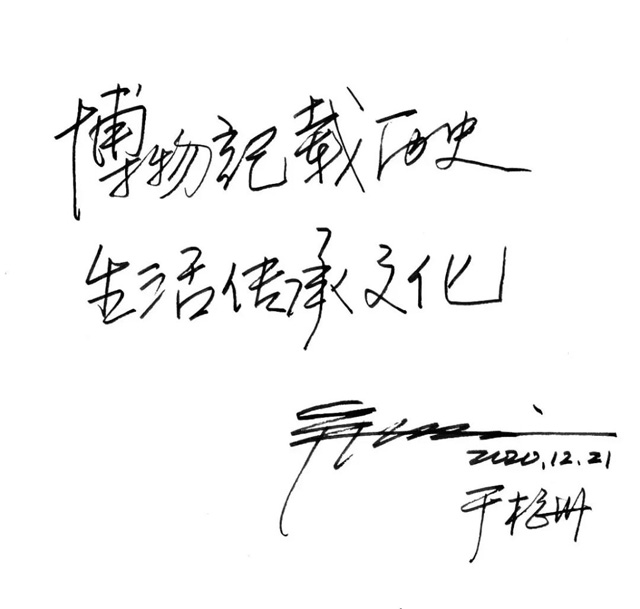 博物記載历史
生活传承文化
2020.12.21
于杭州